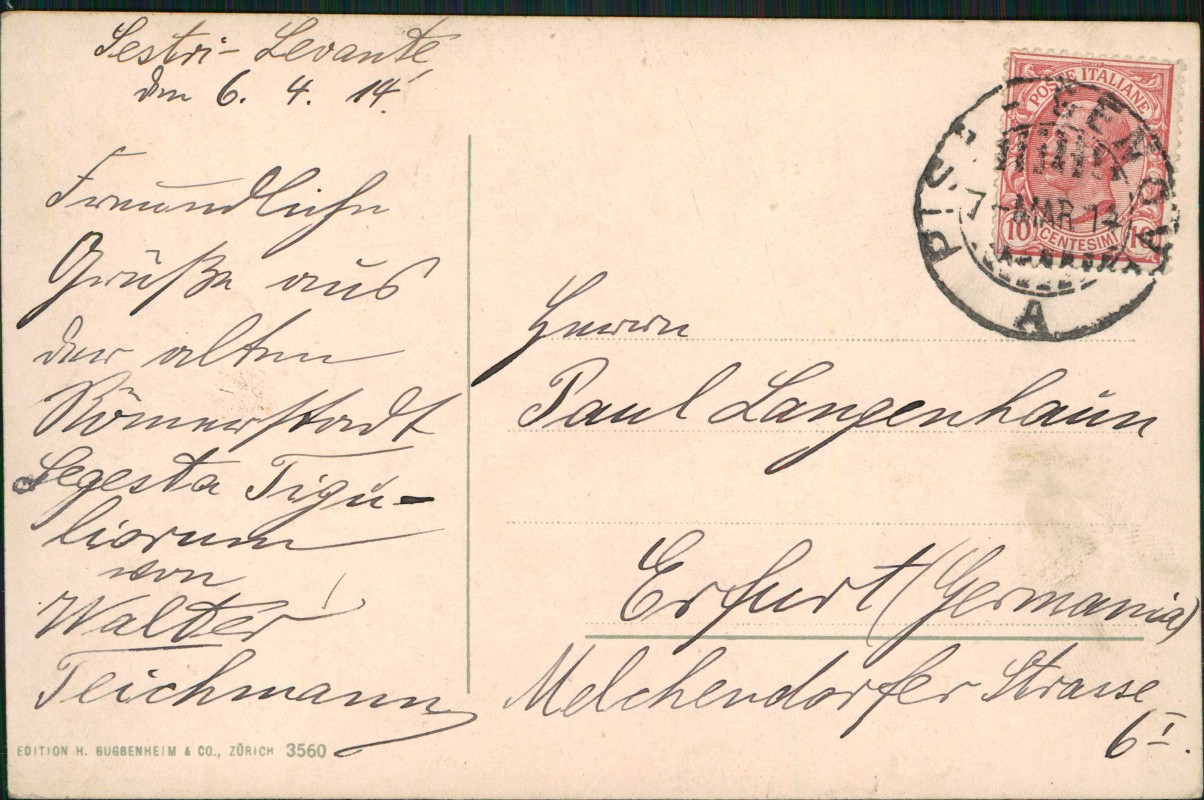 Sestri-Levante
den 6. 4. 14.
Freundliche
Grüße aus
der alten
Römerstadt
Segesta Tigu-
liorum
von
Walter
Teichmann
EDITION H. GUGGENHEIM & CO., ZÜRICH 3560
POSTE ITALIANE
10 CENTESIMI 10
7-MAR 14
A
Herrn
Paul Langenhaun
Erfurt (Germania)
Melchendorfer Strasse
6 I.